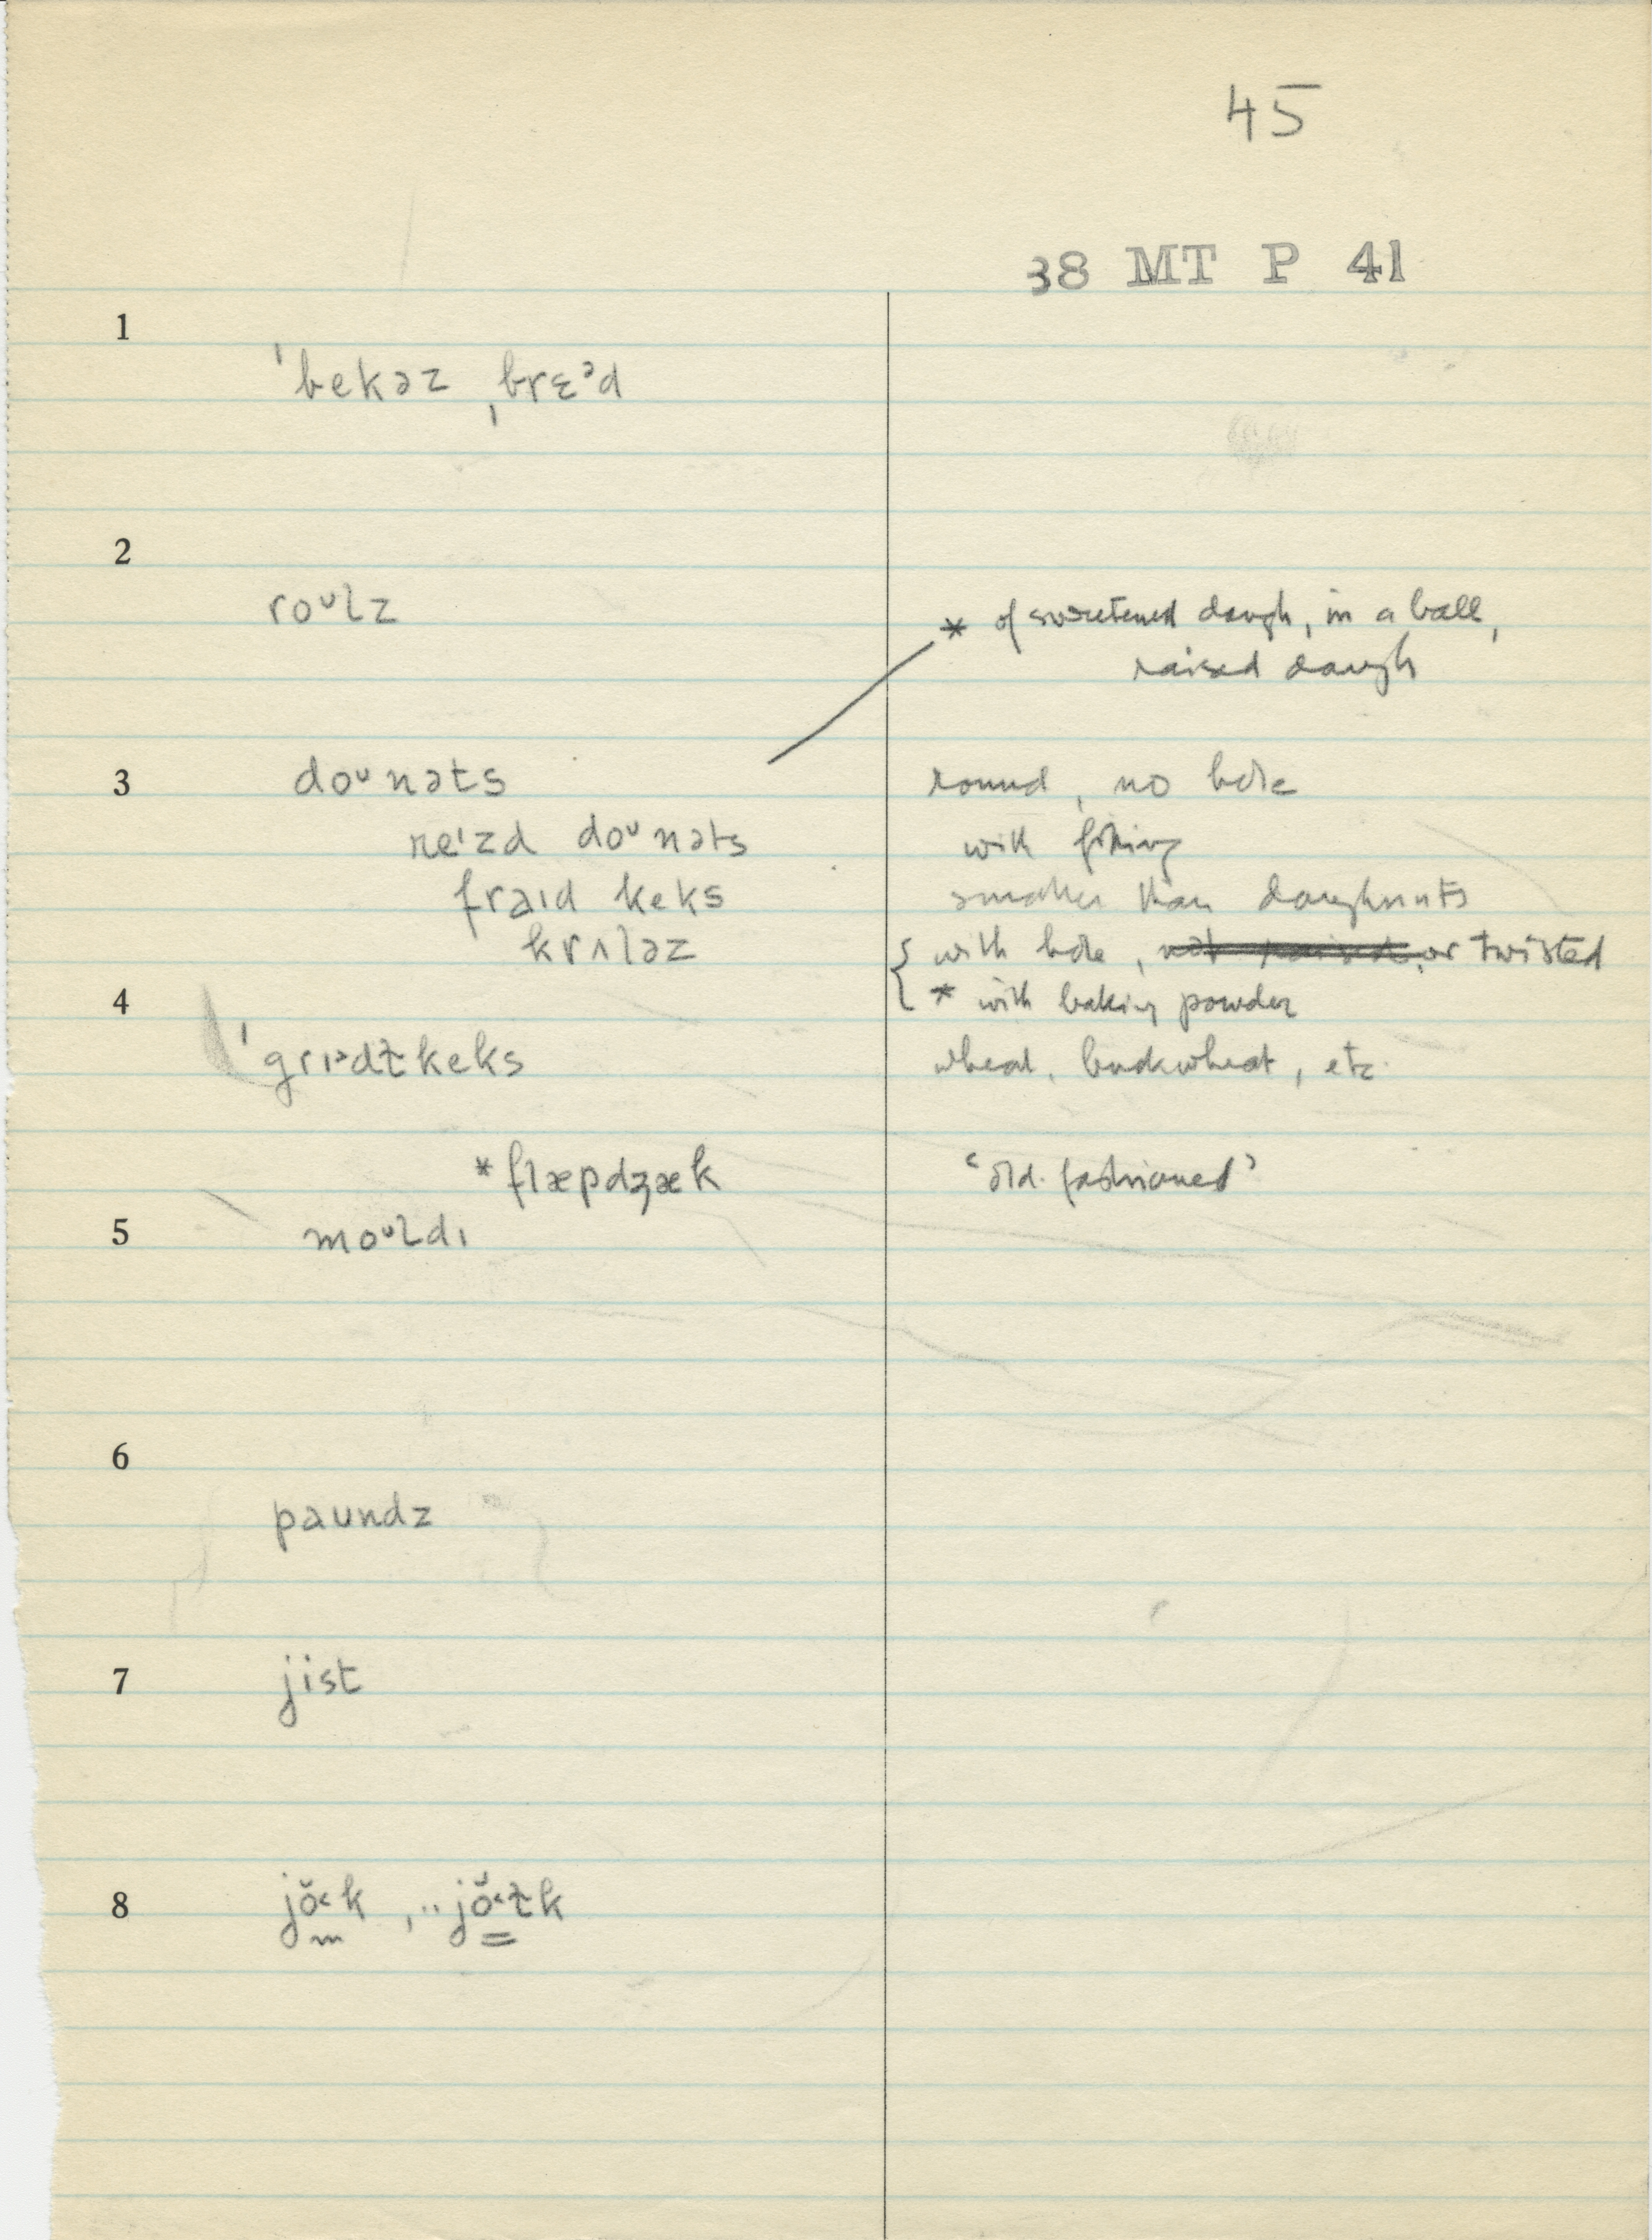 45
38 MT P 41
1
ˈbekəz ˌbrɛᵊd
2
roᶷlz
* of sweetened dough, in a ball,
raised dough
3 doᶷnəts round, no hole
reˈzd doᶷnəts with filling
fraɪd keks smaller than doughnuts
krʌləz { with hole, or twisted
4 * with baking powder
ˈgrɪᵊdƚkeks wheat, buckwheat, etc.
*flæpdʒæk ‘old-fashioned’
5 moᶷldɪ
6
paundz
7 jist
8 jŏ˂k , ·· jŏ˂ƚk